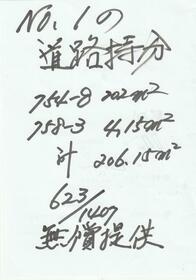 No.1の
道路持分
754-8 202m²
758-3 4,15m²
計 206.15m²
623/1407
無償提供